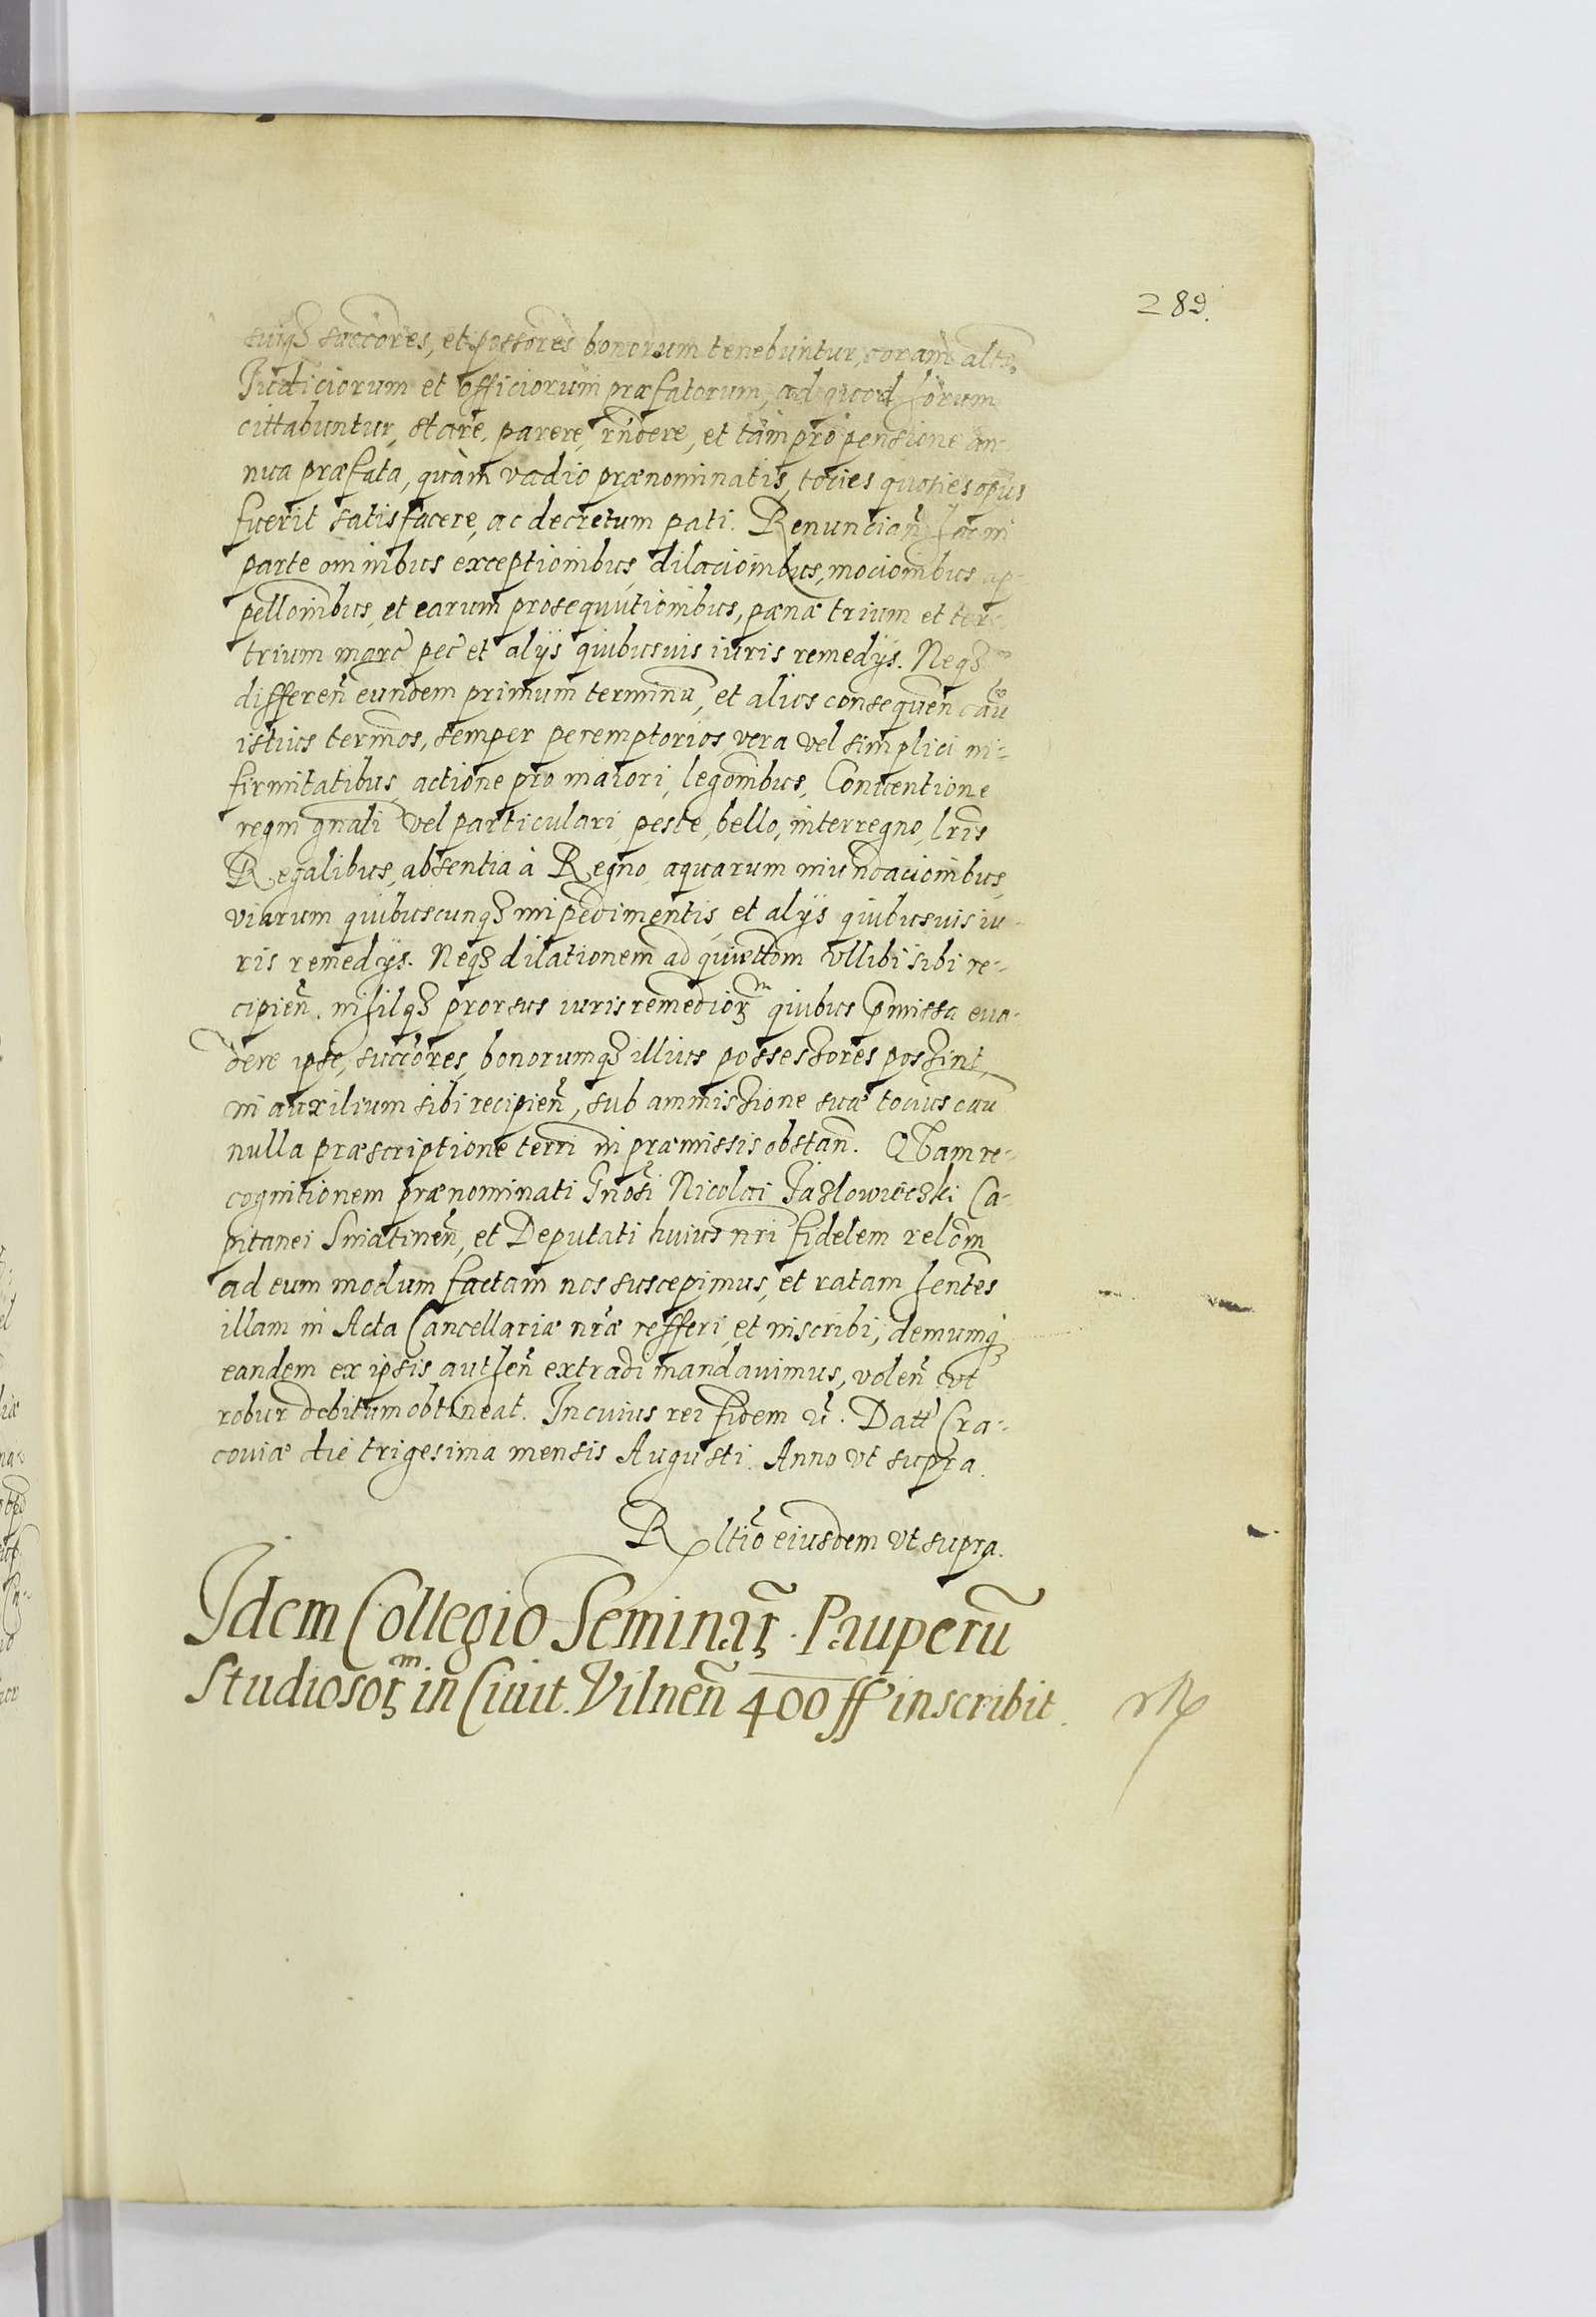 289.
suiqȝ succores, et possores bonorum tenebuntur, coram alto
Iudiciorum et officiorum præfatorum, ad quod horum
cittabuntur, stare, parere, rñdere, et tam pro pensione an-
nua præfata, quàm vadio prænominatis, tocies quoties opus
fuerit satisfacere, ac decretum pati. Renuncian̄ hac in
parte omnibus exceptionibus, dilaciōnibus, mociōnibus ap-
pellōnibus, et earum prosequutionibus, pænæ trium et ter-
trium marc̃ pec̃ et alys quibusuis iuris remedijs. Neqȝ
differen̄ eundem primum terminū, et alios consequen̄ cāū
istius terminos, semper peremptorios, vera vel simplici in-
firmitatibus, actione pro maiori, legōnibus, Conuentione
regni gnāli vel particulari, peste, bello, interregno, lr̄is
Regalibus, absentia à Regno, aquarum inundaciōnibus,
viarum quibuscunqȝ impedimentis, et alijs quibusuis iu-
ris remedijs. Neqȝ dilationem ad quietōm vllibi sibi re-
cipien̄. nihilqȝ prorsus iuris remedioꝝ quibus p̄missa eua-
dere ipse, succores, bonorumqȝ illius possessores possint,
in auxilium sibi recipien̄, sub ammissione suæ tocius cāū
nulla præscriptione terri in præmissis obstan̄. Quam re-
cognitionem prænominati Gnosi Nicolai Jazlowieczki Ca-
pitanei Sniatinen̄, et Deputati huius nr̄i fidelem relōm
ad eum modum factam nos suscepimus, et ratam hentes
illam in Acta Cancellariæ nr̄æ refferi, et inscribi, demumqȝ
eandem ex ipsis authen̄ extradi mandauimus, volen̄ vt
robur debitum obtineat. In cuius rei fidem ꝛc̃. Datt̃ Cra-
couiæ die trigesima mensis Augusti. Anno vt supra.
Rltio eiusdem vt supra.
Idem Collegio Seminaꝝ. Pauperū
Studiosoꝝ in Ciuit. Vilnen̄ 400 ff inscribit.